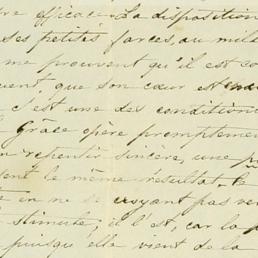 re efficace. La disposition
ses petites farces, au mili
me prouvent qu'il est co
uent, que son cœur est
c'est une des condition
Grâce opère promptemen
n repentir sincère, une
ent le même résultat. Le
en ne se croyant pas
stimule; il l'est, car la
puisqu'elle vient de la